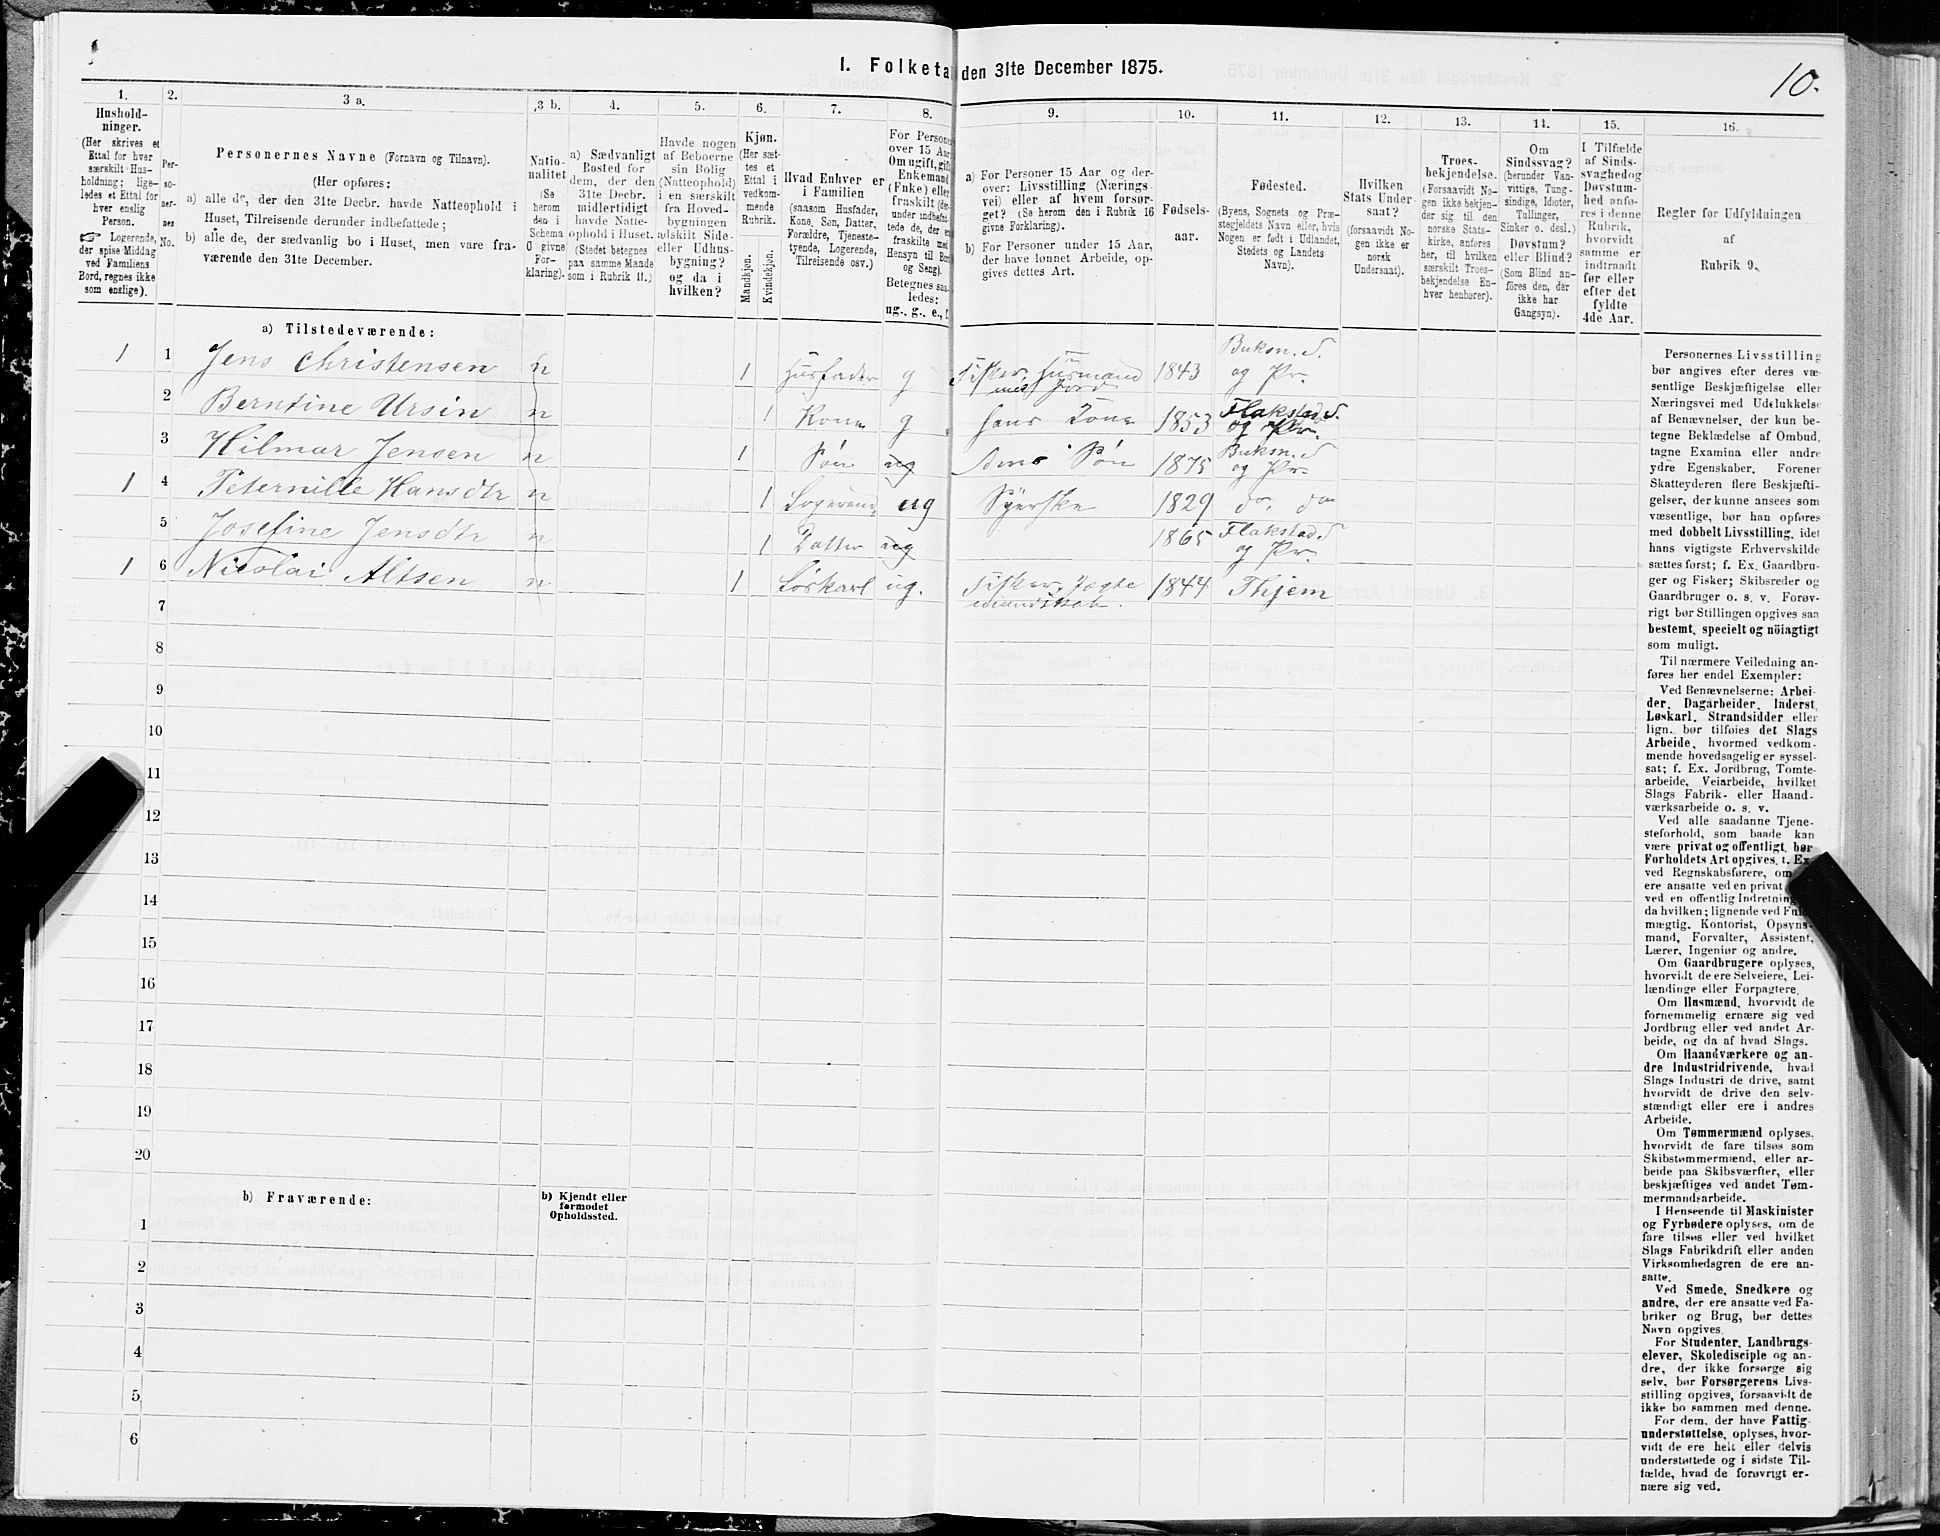 I. Folketa den 31te December 1875.
10.
1.
Hushold-
ninger.
(Her skrives et
Ettal for hver
særskilt Hus-
holdning; lige-
ledes et Ettal for
hver enslig
Person.
Logerende,
der spise Middag
ved Familiens
Bord, regnes ikke
som enslige).
2.
Per-
so-
ner-
nes
No.
3 a.
Personernes Navne (Fornavn og Tilnavn).
(Her opføres:
a) alle de, der den 31te Decbr. havde Natteophold i
Huset, Tilreisende derunder indbefattede;
b) alle de, der sædvanlig bo i Huset, men vare fra-
værende den 31te December.
3 b.
Natio-
nalitet
(Se
herom
den i
Schema
O givne
For-
klaring).
4.
a) Sædvanligt
Bosted for
dem, der den
31te Decbr.
midlertidigt
havde Natte-
ophold i Huset.
(Stedet betegnes
paa samme Maade
som i Rubrik 11.)
5.
Havde nogen
af Beboerne
sin Bolig
(Natteophold)
i en særskilt
fra Hoved-
bygningen
adskilt Side-
eller Udhus-
bygning?
og da i
hvilken?
6.
Kjøn.
(Her sæt-
tes et
Ettal i
vedkom-
mende
Rubrik.
Mandkjøn.
Kvindekjøn.
7.
Hvad Enhver er
i Familien
(saasom Husfader,
Kone, Søn, Datter,
Forældre, Tjeneste-
tyende, Logerende,
Tilreisende osv.)
8.
For Persone
over 15 Aar
Om ugift, gift
Enkemand
(Fuke) eller
fraskilt (der-
under indbefat-
tede de, der er
fraskilte med
Hensyn til Bord
og Seng).
Betegnes saa-
ledes:
ug., g., e., f.
9.
a) For Personer 15 Aar og der-
over: Livsstilling (Nærings-
vei) eller af hvem forsør-
get? (Se herom den i Rubrik 16
givne Forklaring).
b) For Personer under 15 Aar,
der have lønnet Arbeide, op-
gives dettes Art.
10.
Fødsels-
aar.
11.
Fødested.
(Byens, Sognets og Præ-
stegjeldets Navn eller, hvis
Nogen er født i Udlandet,
Stedets og Landets
Navn).
12.
Hvilken
Stats Under-
saat?
(forsaavidt No-
gen ikke er
norsk
Undersaat).
13.
Troes-
bekjendelse.
(Forsaavidt No-
gen ikke bekjen-
der sig til den
norske Stats-
kirke, anføres
her, til hvilken
særskilt Troes-
bekjendelse En-
hver henhører).
14.
Om
Sindssvag?
(herunder Van-
vittige, Tung-
sindige, Idioter,
Tullinger,
Sinker o. desl.)
Døvstum?
eller Blind?
(Som Blind an-
føres den, der
ikke har
Gangsyn).
15.
I Tilfælde
af Sinds-
svaghed og
Døvstum-
hed anfø-
res i denne
Rubrik,
hvorvidt
samme er
indtraadt
før eller
efter det
fyldte
4de Aar.
16.
Regler for Udfyldningen
af
Rubrik 9.
a) Tilstedeværende:
1 1 Jens Christensen n 1 Husfader g Fisker, Husmand
med Jord 1843 Buksn. S.
og Pr.
2 Berntine Ursin n 1 Kone g hans Kone 1853 Flakstad S.
og Pr.
3 Hilmar Jensen n 1 Søn ug Søn 1875 Buksn. S
og Pr.
1 4 Peternille Hansdtr n 1 Logerend. ug Syerske 1829 do. do
5 Josefine Jensdtr n 1 Datter ug 1865 Flakstad S
og Pr.
1 6 Nicolai Altsen n 1 Løskarl ug. Fisker, Jagte
mandskab. 1844 Thjem
7
8
9
10
11
12
13
14
15
16
17
18
19
20
b) Fraværende:
b) Kjendt eller
formodet
Opholdssted.
1
2
3
4
5
6
Personernes Livsstilling
bør angives efter deres væ-
sentlige Beskjæftigelse eller
Næringsvei med Udelukkelse
af Benævnelser, der kun be-
tegne Beklædelse af Ombud,
tagne Examina eller andre
ydre Egenskaber. Forener
Skatteyderen flere Beskjæfti-
gelser, der kunne ansees som
væsentlige, bør han opføres
med dobbelt Livsstilling, idet
hans vigtigste Erhvervskilde
sættes først; f. Ex. Gaardbru-
ger og Fisker; Skibsreder og
Gaardbruger o. s. v. Forøv-
rigt bør Stillingen opgives saa
bestemt, specielt og nöiagtigt
som muligt.
Til nærmere Veiledning an-
føres her endel Exempler:
Ved Benævnelserne: Arbei-
der, Dagarbeider, Inderst,
Løskarl, Strandsidder eller
lign. bør tilføies det Slags
Arbeide, hvormed vedkom-
mende hovedsagelig er syssel-
sat; f. Ex. Jordbrug, Tomte-
arbeide, Veiarbeide, hvilket
Slags Fabrik- eller Haand-
værksarbeide o. s. v.
Ved alle saadanne Tjene-
steforhold, som baade kan
være privat og offentligt, bør
Forholdets Art opgives, t. Ex.
ved Regnskabsførere, om
ere ansatte ved en privat
ved en offentlig Indretning
da hvilken; lignende ved Fuld-
mægtig, Kontorist, Opsyns-
mand, Forvalter, Assistent,
Lærer, Ingeniør og andre.
Om Gaardbrugere oplyses,
hvorvidt de ere Selveiere, Lei-
lændinge eller Forpagtere.
Om Husmænd, hvorvidt de
fornemmelig ernære sig ved
Jordbrug eller ved andet Ar-
beide, og da af hvad Slags.
Om Haandværkere og an-
dre Industridrivende, hvad
Slags Industri de drive, samt
hvorvidt de drive den selv-
stændigt eller ere i andres
Arbeide.
Om Tømmermænd oplyses,
hvorvidt de fare tilsøs som
Skibstømmermænd, eller ar-
beide paa Skibsværfter, eller
beskjæftiges ved andet Tøm-
mermandsarbeide.
I Henseende til Maskinister
og Fyrbødere oplyses, om de
fare tilsøs eller ved hvilket
Slags Fabrikdrift eller anden
Virksomhedsgren de ere an-
satte.
Ved Smede, Snedkere og
andre, der ere ansatte ved Fa-
briker og Brug, bør dettes
Navn opgives.
For Studenter, Landbrugs-
elever, Skoledisciple og an-
dre, der ikke forsørge sig
selv, bør Forsørgerens Livs-
stilling opgives, forsaavidt de
ikke bo sammen med denne.
For dem, der have Fattig-
understøttelse, oplyses, hvor-
vidt de ere helt eller delvis
understøttede og i sidste Til-
fælde, hvad de forøvrigt er-
nære sig ved.